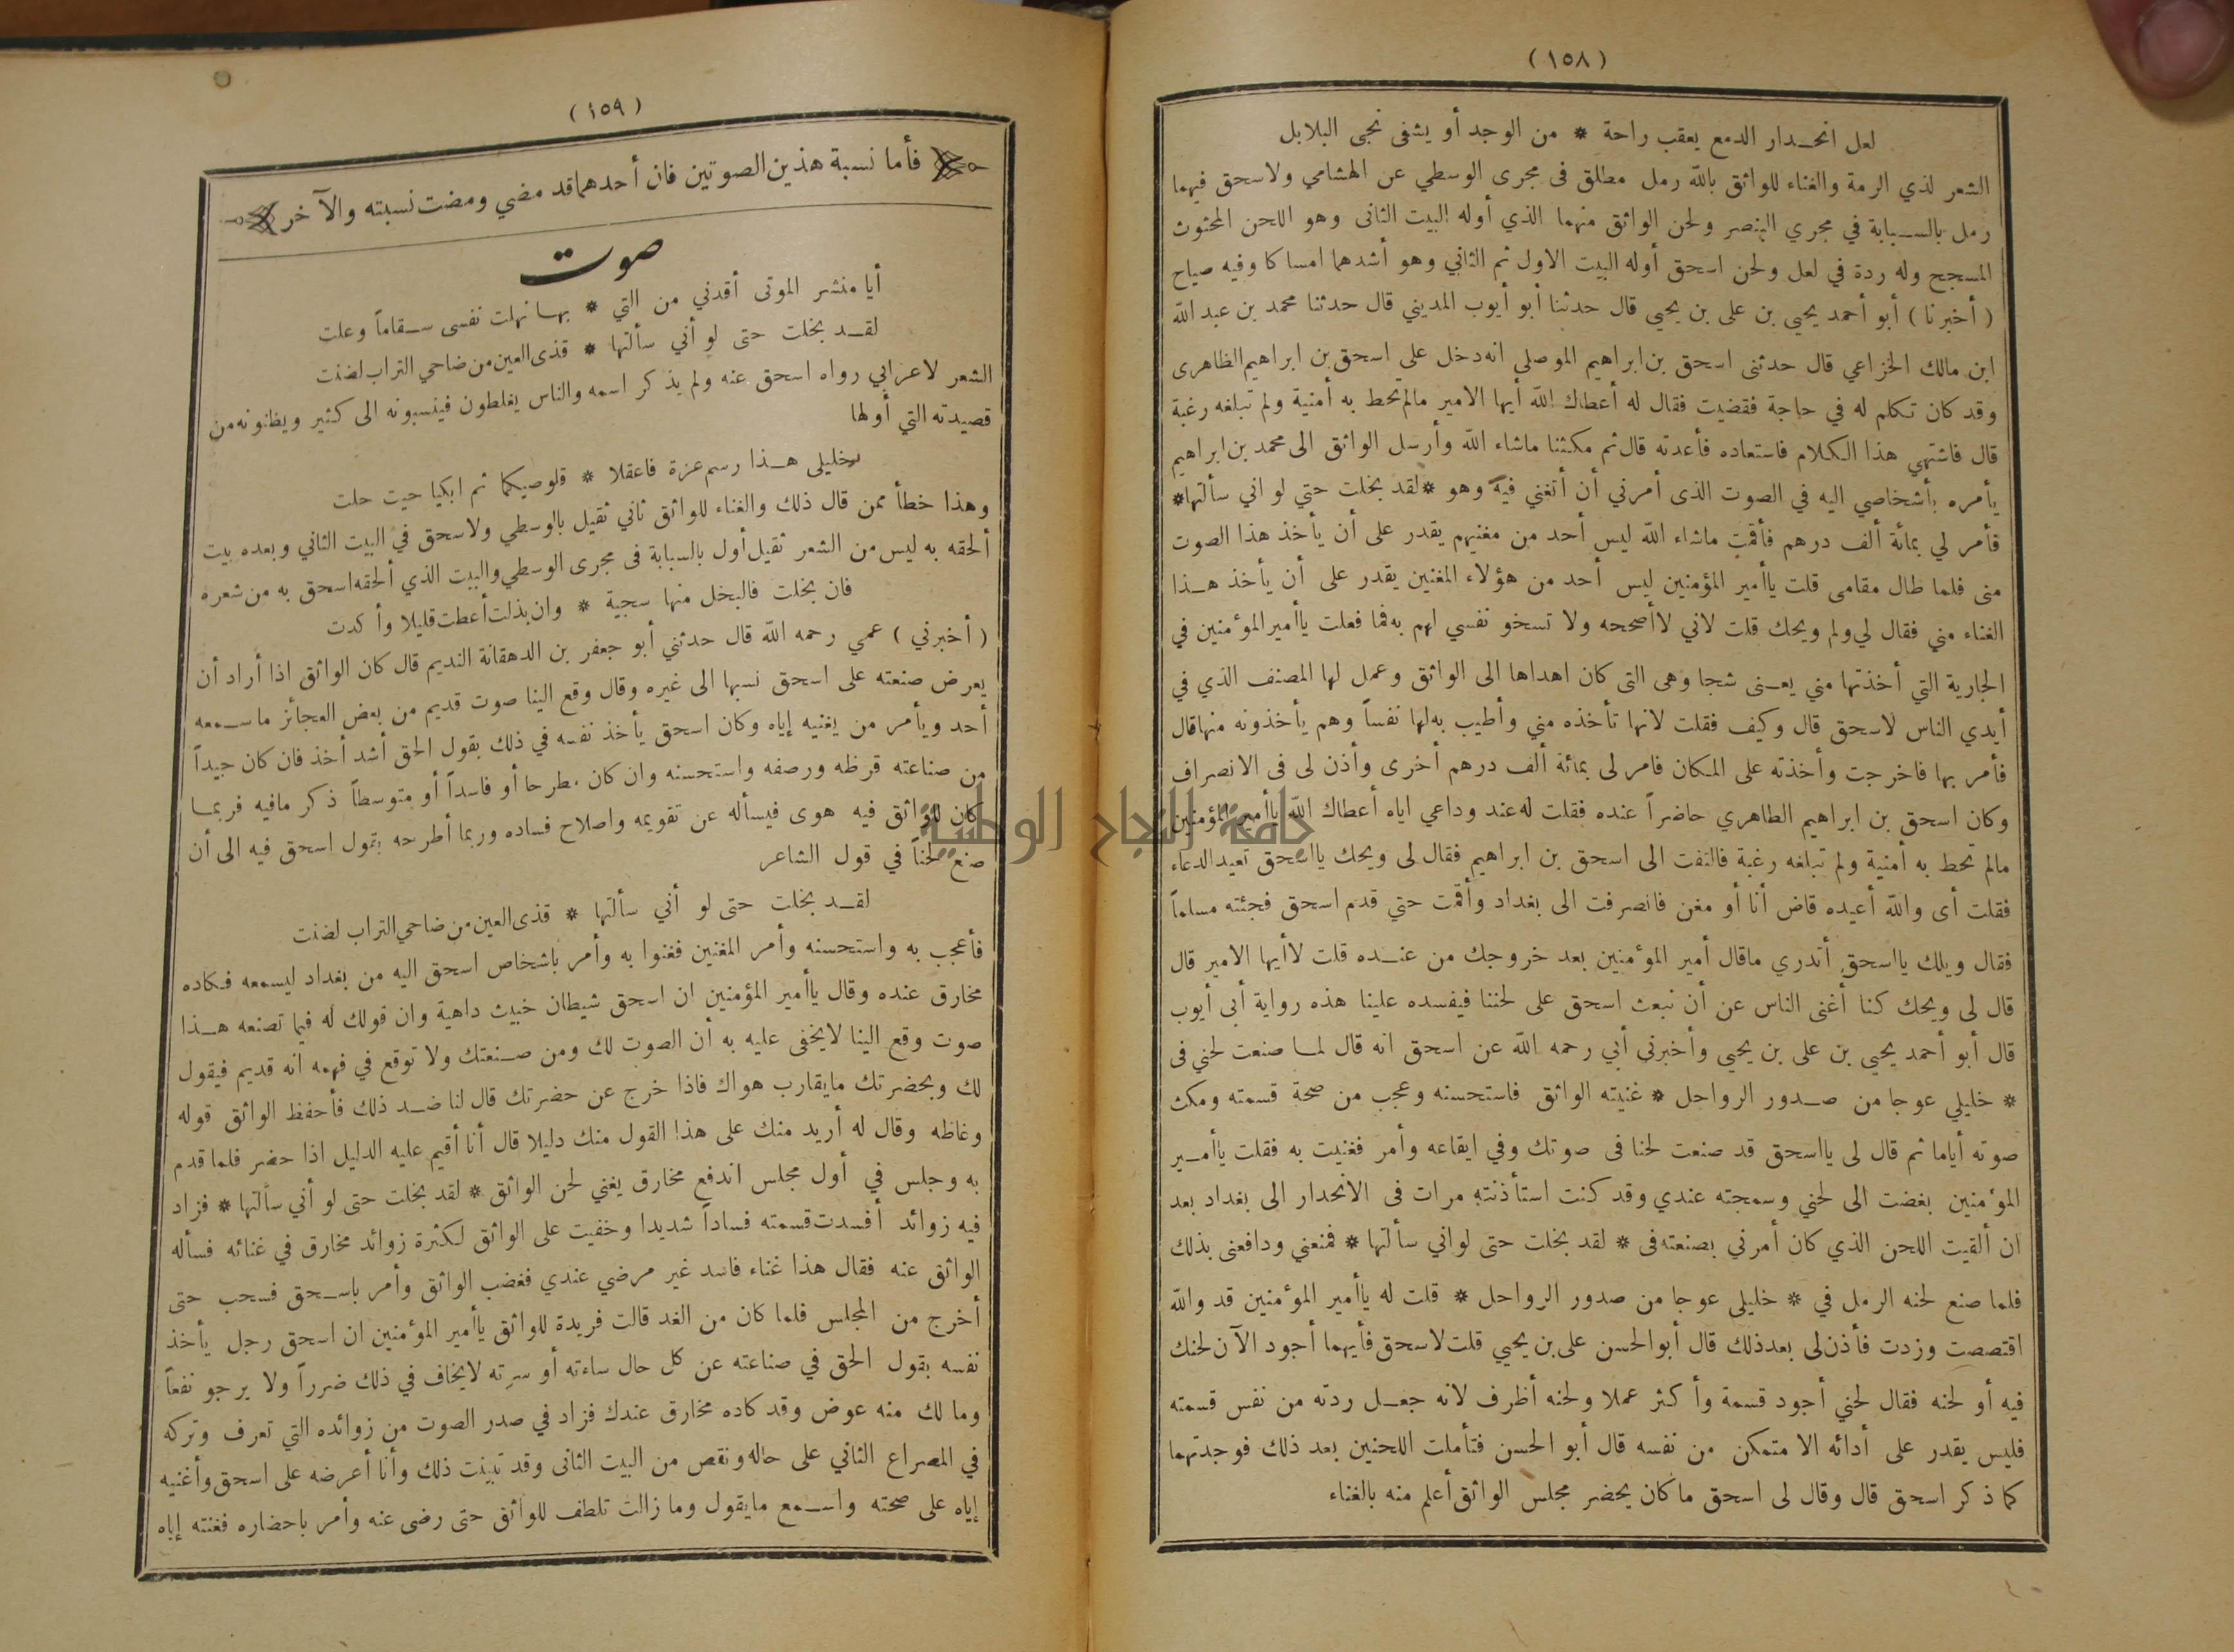 (١٥٨)
لعل انحدار الدمع يعقب راحة * من الوجد أو يشفى نجى البلابل
الشعر لذي الرمة والغناء للواثق بالله رمل مطلق فى مجرى الوسطي عن الهشامي ولاسحق فيهما
رمل بالسبابة في مجري البنصر ولحن الواثق منهما الذي أوله البيت الثانى وهو اللحن المحثوث
المسجح وله ردة في لعل ولحن اسحق أوله البيت الاول ثم الثاني وهو أشدهما امساكا وفيه صياح
(أخبرنا) أبو أحمد يحيى بن على بن يحيى قال حدثنا أبو أيوب المديني قال حدثنا محمد بن عبد الله
ابن مالك الخزاعي قال حدثنى اسحق بن ابراهيم الموصلى انه دخل على اسحق بن ابراهيم الظاهرى
وقد كان تكلم له في حاجة فقضيت فقال له أعطاك الله أيها الامير مالم تحط به أمنية ولم تبلغه رغبة
قال فاشتهي هذا الكلام فاستعاده فأعدته قال ثم مكثنا ماشاء الله وأرسل الواثق الى محمد بن ابراهيم
يأمره بأشخاصي اليه في الصوت الذى أمرني أن أتغني فيه وهو * لقد بخلت حتي لو اني سألتها *
فأمر لي بمائة ألف درهم فأقمت ماشاء الله ليس أحد من مغنيهم يقدر على أن يأخذ هذا الصوت
منى فلما طال مقامى قلت ياأمير المؤمنين ليس أحد من هؤلاء المغنين يقدر على أن يأخذ هذا
الغناء مني فقال لي ولم ويحك قلت لاني لاأصححه ولا تسخو نفسي لهم به فما فعلت ياأمير المؤمنين في
الجارية التي أخذتها مني يعنى شجا وهى التى كان اهداها الى الواثق وعمل لها المصنف الذي في
أيدي الناس لاسحق قال وكيف فقلت لانها تأخذه مني وأطيب به لها نفساً وهم يأخذونه منها قال
فأمر بها فاخرجت وأخذته على المكان فامر لى بمائة ألف درهم أخرى وأذن لى فى الانصراف
وكان اسحق بن ابراهيم الطاهري حاضراً عنده فقلت له عند وداعي اياه أعطاك الله ياأمير المؤمنين
مالم تحط به أمنية ولم تبلغه رغبة فالتفت الى اسحق بن ابراهيم فقال لى ويحك يااسحق تعيد الدعاء
فقلت أى والله أعيده قاض أنا أو مغن فانصرفت الى بغداد وأقمت حتي قدم اسحق فجئته مسلماً
فقال ويلك يااسحق أتدري ماقال أمير المؤمنين بعد خروجك من عنده قلت لاأيها الامير قال
قال لى ويحك كنا أغنى الناس عن أن نبعث اسحق على لحننا فيفسده علينا هذه رواية أبى أيوب
قال أبو أحمد يحيى بن على بن يحيى وأخبرنى أبي رحمه الله عن اسحق انه قال لما صنعت لحني فى
* خليلي عوجا من صدور الرواحل * غنيته الواثق فاستحسنه وعجب من صحة قسمته ومكث
صوته أياما ثم قال لى يااسحق قد صنعت لحنا فى صوتك وفي ايقاعه وأمر فغنيت به فقلت ياأمير
المؤمنين بغضت الى لحني وسمجته عندي وقد كنت استأذنته مرات فى الانحدار الى بغداد بعد
ان ألقيت اللحن الذي كان أمرني بصنعته فى * لقد بخلت حتى لواني سألتها * فمنعني ودافعنى بذلك
فلما صنع لحنه الرمل في * خليلى عوجا من صدور الرواحل * قلت له ياأمير المؤمنين قد والله
اقتصصت وزدت فأذن لى بعد ذلك قال أبو الحسن على بن يحيي قلت لاسحق فأيهما أجود الآن لحنك
فيه أو لحنه فقال لحني أجود قسمة وأكثر عملا ولحنه أظرف لانه جعل ردته من نفس قسمته
فليس يقدر على أدائه الا متمكن من نفسه قال أبو الحسن فتأملت اللحنين بعد ذلك فوجدتهما
كما ذكر اسحق قال وقال لى اسحق ماكان يحضر مجلس الواثق أعلم منه بالغناء
(١٥٩)
فأما نسبة هذين الصوتين فان أحدهما قد مضي ومضت نسبته والآخر
صوت
أيا منشر الموتى أقدني من التي * بها نهلت نفسى سقاماً وعلت
لقد بخلت حتى لو أني سألتها * قذى العين من ضاحي التراب لضنت
الشعر لاعرابي رواه اسحق عنه ولم يذكر اسمه والناس يغلطون فينسبونه الى كثير ويظنونه من
قصيدته التي أولها
خليلى هذا رسم عزة فاعقلا * قلوصيكما ثم ابكيا حيث حلت
وهذا خطأ ممن قال ذلك والغناء للواثق ثاني ثقيل بالوسطي ولاسحق في البيت الثاني وبعده بيت
ألحقه به ليس من الشعر ثقيل أول بالسبابة فى مجرى الوسطي والبيت الذي ألحقه اسحق به من شعره
فان بخلت فالبخل منها سجية * وان بذلت أعطت قليلا وأكدت
(أخبرني) عمي رحمه الله قال حدثني أبو جعفر بن الدهقانة النديم قال كان الواثق اذا أراد أن
يعرض صنعته على اسحق نسبها الى غيره وقال وقع الينا صوت قديم من بعض العجائز ماسمعه
أحد ويأمر من يغنيه إياه وكان اسحق يأخذ نفسه في ذلك بقول الحق أشد أخذ فان كان جيداً
من صناعته قرظه ورصفه واستحسنه وان كان مطرحا أو فاسداً أو متوسطاً ذكر مافيه فربما
كان للواثق فيه هوى فيسأله عن تقويمه واصلاح فساده وربما أطرحه بقول اسحق فيه الى أن
صنع لحناً في قول الشاعر
لقد بخلت حتى لو أني سألتها * قذى العين من ضاحي التراب لضنت
فأعجب به واستحسنه وأمر المغنين فغنوا به وأمر باشخاص اسحق اليه من بغداد ليسمعه فكاده
مخارق عنده وقال ياأمير المؤمنين ان اسحق شيطان خبيث داهية وان قولك له فيما تصنعه هذا
صوت وقع الينا لايخفى عليه به أن الصوت لك ومن صنعتك ولا توقع في فهمه انه قديم فيقول
لك وبحضرتك مايقارب هواك فاذا خرج عن حضرتك قال لنا ضد ذلك فأحفظ الواثق قوله
وغاظه وقال له أريد منك على هذا القول منك دليلا قال أنا أقيم عليه الدليل اذا حضر فلما قدم
به وجلس في أول مجلس اندفع مخارق يغني لحن الواثق * لقد بخلت حتى لو أني سألتها * فزاد
فيه زوائد أفسدت قسمته فساداً شديدا وخفيت على الواثق لكثرة زوائد مخارق في غنائه فسأله
الواثق عنه فقال هذا غناء فاسد غير مرضي عندي فغضب الواثق وأمر باسحق فسحب حتى
أخرج من المجلس فلما كان من الغد قالت فريدة للواثق ياأمير المؤمنين ان اسحق رجل يأخذ
نفسه بقول الحق في صناعته عن كل حال ساءته أو سرته لايخاف في ذلك ضرراً ولا يرجو نفعاً
وما لك منه عوض وقد كاده مخارق عندك فزاد في صدر الصوت من زوائده التي تعرف وتركه
في المصراع الثاني على حاله ونقص من البيت الثانى وقد تبينت ذلك وأنا أعرضه على اسحق وأغنيه
إياه على صحته واسمع مايقول وما زالت تلطف للواثق حتى رضى عنه وأمر باحضاره فغنته إياه
جامعة النجاح الوطنية